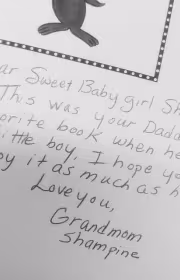 ar Sweet Baby girl Sh
This was your Dadd
orite book when he
ittle boy. I hope yo
oy it as much as h
Love you,
Grandmom
Shampine